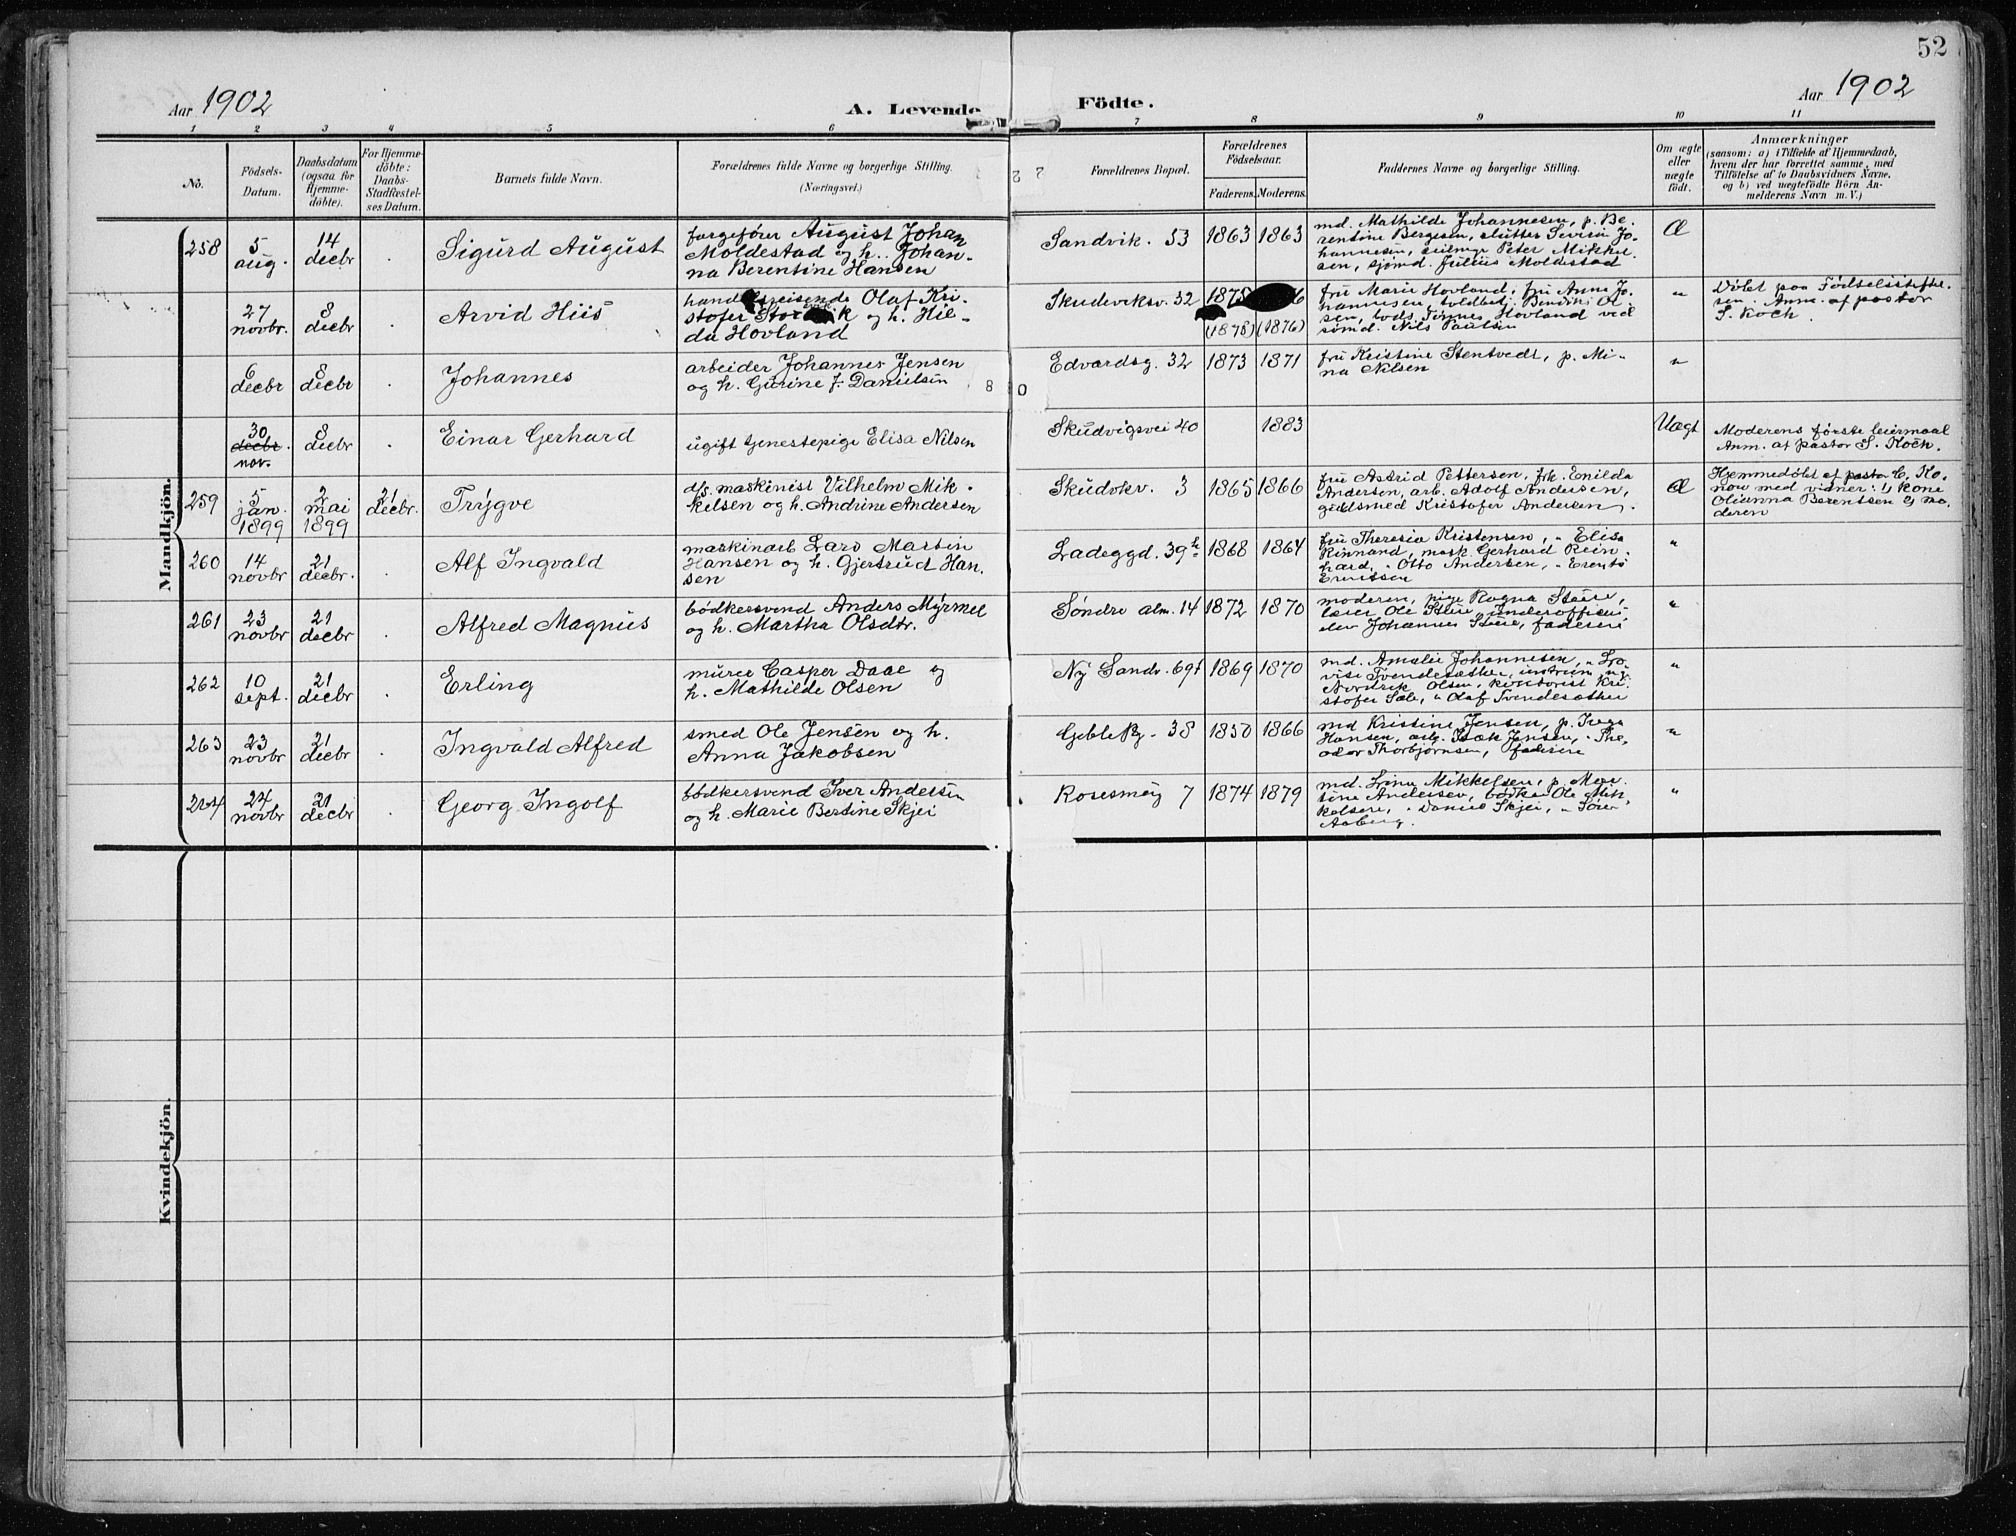 52
Aar 1902
A. Levende Födte.
Aar 1902
1 2 3 4 5 6 7 8 9 10 11
No.
Födsels-
Datum.
Daabsdatum
(ogsaa for
Hjemme-
döbte).
For Hjemme-
döbte:
Daabs-
Stadfæstel-
ses Datum.
Barnets fulde Navn.
Forældrenes fulde Navne og borgerlige Stilling.
(Næringsvei.)
Forældrenes Bopæl.
Forældrenes
Födselsaar.
Faderens. Moderens.
Faddernes Navne og borgerlige Stilling.
Om ægte
eller
uægte
födt.
Anmærkninger
(saasom: a) i Tilfælde af Hjemmedaab,
hvem der har forrettet samme, med
Tilföielse af to Daabsvidners Navne,
og b) ved uægtefödte Börn An-
melderens Navn m. V.)
Mandkjön.
258
5
aug.
14
decbr
Sigurd August
færgefører August Johan
Moldestad og h. Johan-
na Berentine Hansen
Sandvik. 53
1863 1863
md. Mathilde Johannesen, p. Be-
rentine Bergesen, slutter Sivert Jo-
hannesen, Peter Mikkel
sen, sjømd. Julius Moldestad
Æ
27
novbr.
8
decbr
Arvid Hiis
handelsreisende Olaf Kri-
stofer og h. Hil-
da Hovland
Skudviksv. 32
1878
(1878) (1876)
fru Marie Hovland, fru Anna Jo-
hannesen, toldbetj. Bendik Ol
sen, Hovland ved
sømd. Nils Paulsen
"
Döbt paa Födselsstiftel-
sen. Anm. af pastor
S. Koch.
6
decbr
8
decbr
Johannes
arbeider Johannes Jensen
og h. Gurine f. Danielsen
Edvardsg. 32
1873 1871
fru Kristine Stentvedt, p. Mi-
na Nilsen
"
30
decbr.
nov.
8
decbr
Einar Gerhard
ugift tjenestepige Elisa Nilsen
Skudvigsvei 40
1883
Uægt
Moderens første leiermaal
Anm. af pastor S. Koch.
259
5
jan.
1899
2
mai
1899
21
decbr.
Trygve
ds. maskinist Vilhelm Mik-
kelsen og h. Andrine Andersen
Skudvkv. 3
1865 1866
fru Astrid Pettersen, frk. Enilda
Andersen, arb. Adolf Andersen,
guldsmed Kristofer Andersen.
Æ
Hjemmedöbt af pastor C. Ko-
now med vidner: 1) kone
Olianna Berentsen 2) mo-
deren
260
14
novbr
21
decbr.
Alf Ingvald
maskinarb Lars Martin
Hansen og h. Gjertrud Han-
sen
Ladeggd. 39
1868 1864
fru Theresia Kristensen, " Elisa
Kinnand, mask. Gerhard Rein-
hard, " Otto Andersen, "
"
261
23
novbr
21
decbr
Alfred Magnus
bødkersvend Anders Myrmel
og h. Martha Olsdtr.
Søndre alm. 14
1872 1870
moderen, pige Ragna Støre,
Ole Støre, underofficers-
elev Johannes Støre, faderen
"
262
10
sept.
21
decbr
Erling
murer Casper Daae og
h. Mathilde Olsen
Ny Sandv. 69
1869 1870
md. Amalie Johannesen, " Lo-
vise Tvendesæther, instrum
Olsen, kontorist Kri-
stofer Sæle, " Olaf Tvendesæther
"
263
23
novbr
21
decbr
Ingvald Alfred
smed Ole Jensen og h.
Anna Jakobsen
Geble Pg. 38
1850 1866
md Kristine Jensen, p. Inga
Hansen, arb. Isak Jensen, " The-
odor Thorbjørnsen, faderen
"
264
24
novbr
21
decbr
Georg Ingolf
bødkersvend Iver Andersen
og h. Marie Bertine Skjei
Rosesmug 7
1874 1879
md. Lina Mikkelsen, p. Mar-
tine Andersen, bødker Ole Mik-
kelsen, " Daniel Skjei, "
Aaberg.
"
Kvindekjön.